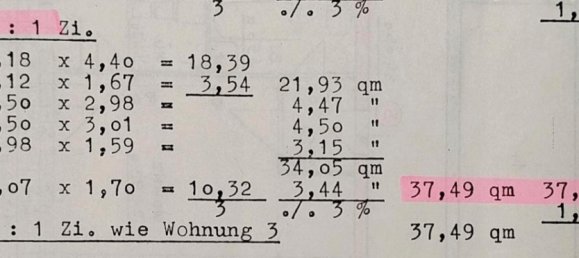 3 ./. 3 % 1,
: 1 Zi.
,18 x 4,40 = 18,39
,12 x 1,67 = 3,54 21,93 qm
,50 x 2,98 = 4,47 "
,50 x 3,01 = 4,50 "
,98 x 1,59 = 3,15 "
34,05 qm
,07 x 1,70 = 10,32 3,44 " 37,49 qm 37,
3 ./. 3 % 1,
: 1 Zi. wie Wohnung 3 37,49 qm